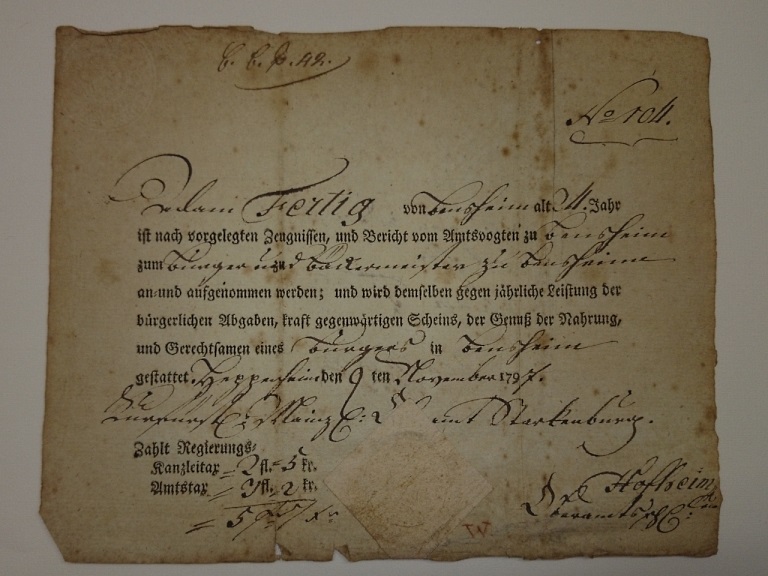 No 104.
Adam Fertig von Bensheim alt 24. Jahr
ist nach vorgelegten Zeugnissen, und Bericht vom Amtsvogten zu Bensheim
zum Burger und Backermeister zu Bensheim
an- und aufgenommen werden; und wird demselben gegen jährliche Leistung der
bürgerlichen Abgaben, kraft gegenwärtigen Scheins, der Genuß der Nahrung,
und Gerechtsamen eines Burgers in Bensheim
gestattet. Heppenheim den 9 ten November 1797.
Kurfurstl: Mainzl: amt Starkenburg.
Zahlt Regierungs-
Kanzleitax = 2 fl. = 5 kr.
Amtstax = 3 fl. 2 kr.
= 5 7
Hofheim
W